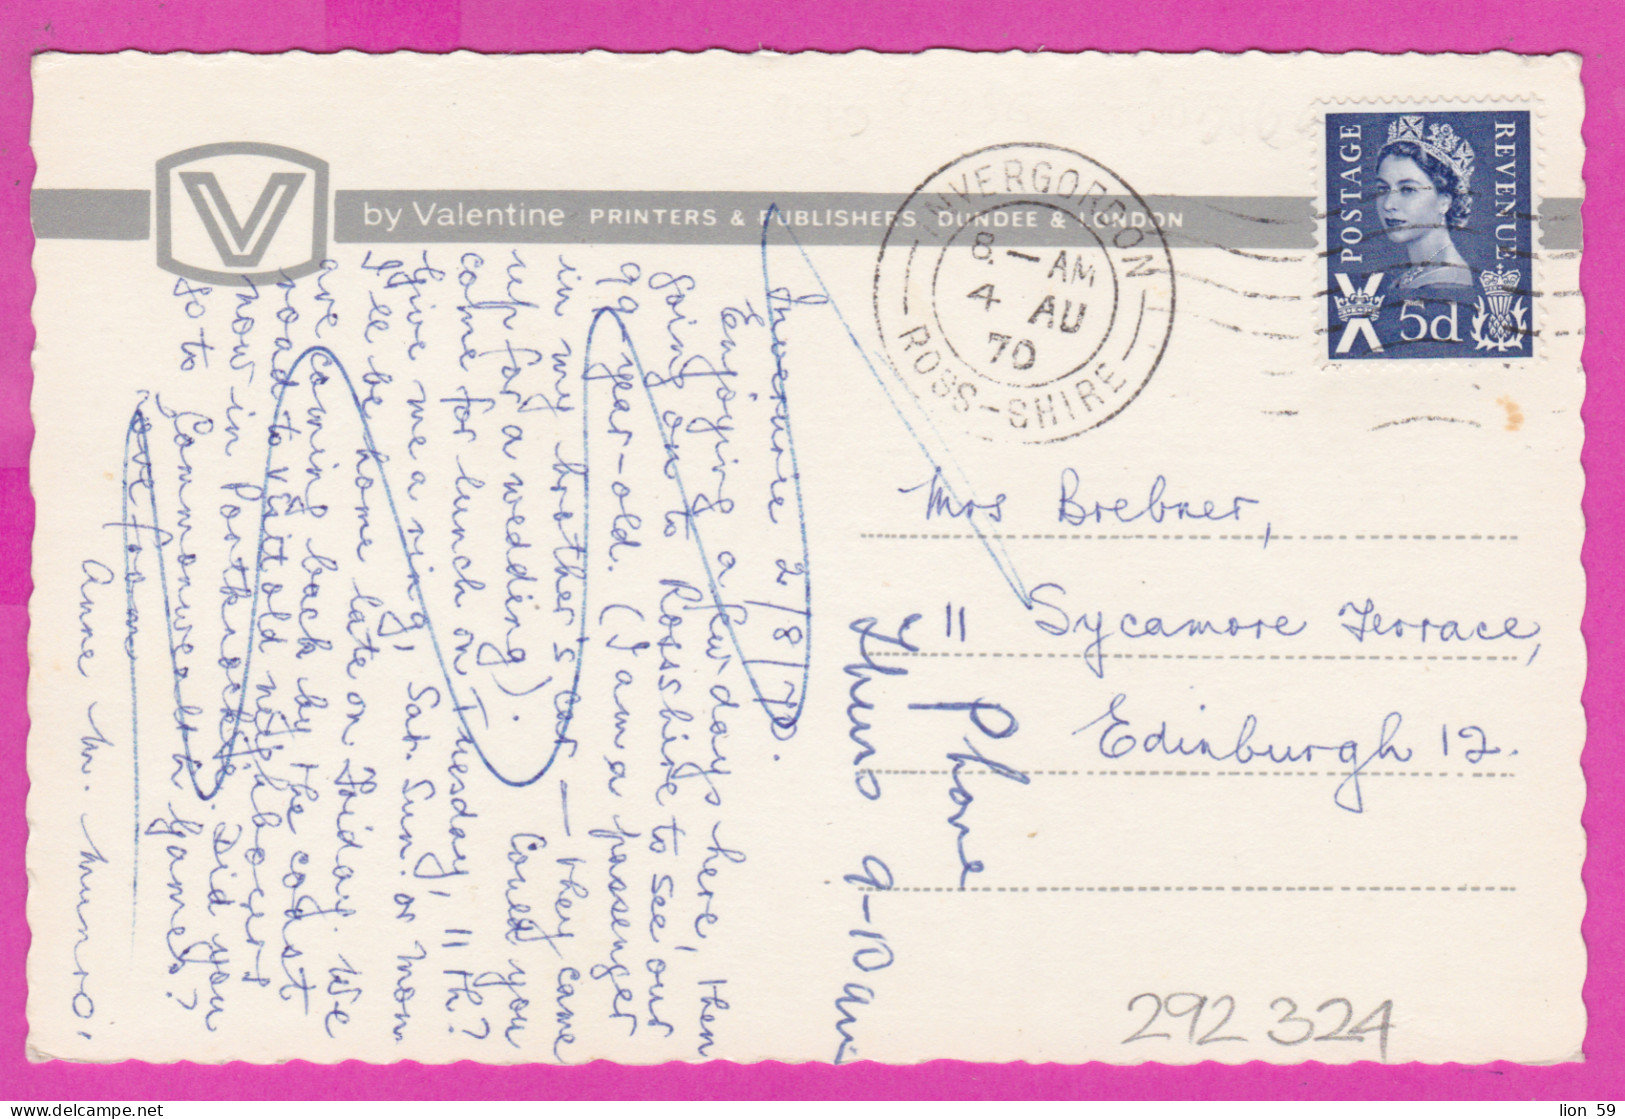 V
by Valentine PRINTERS & PUBLISHERS, DUNDEE & LONDON
INVERGORDON
8 - AM
4 AU
70
ROSS-SHIRE
POSTAGE
REVENUE
5d
Inverurie 2/8/70.
Enjoying a few days here, then
going on to Rossshire to see our
99-year-old. (I am a passenger
in my brother's car — they came
up for a wedding). Could you
come for lunch on Tuesday, 11th?
Give me a ring, Sat. Sun. or Mon.
I'll be home late on Friday. We
are coming back by the coast
road to visit old neighbours
now in Portknockie. Did you
go to Commonwealth Games?
Love from
Anne M. Munro.
Mrs Brebner,
11 Sycamore Terrace,
Edinburgh 12.
Phone
Thurs 9-10 am
292 324
lion 59